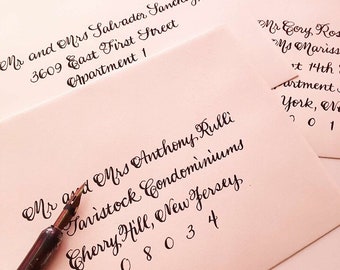 Mr and Mrs Salvador
3609 East First Street
Apartment 1
Mr Cory
Ms Mariss
14th
Apartment
York, Ne
0 1
Mr and Mrs Anthony Rulli
Tavistock Condominiums
Cherry Hill, New Jersey
0 8 0 3 4